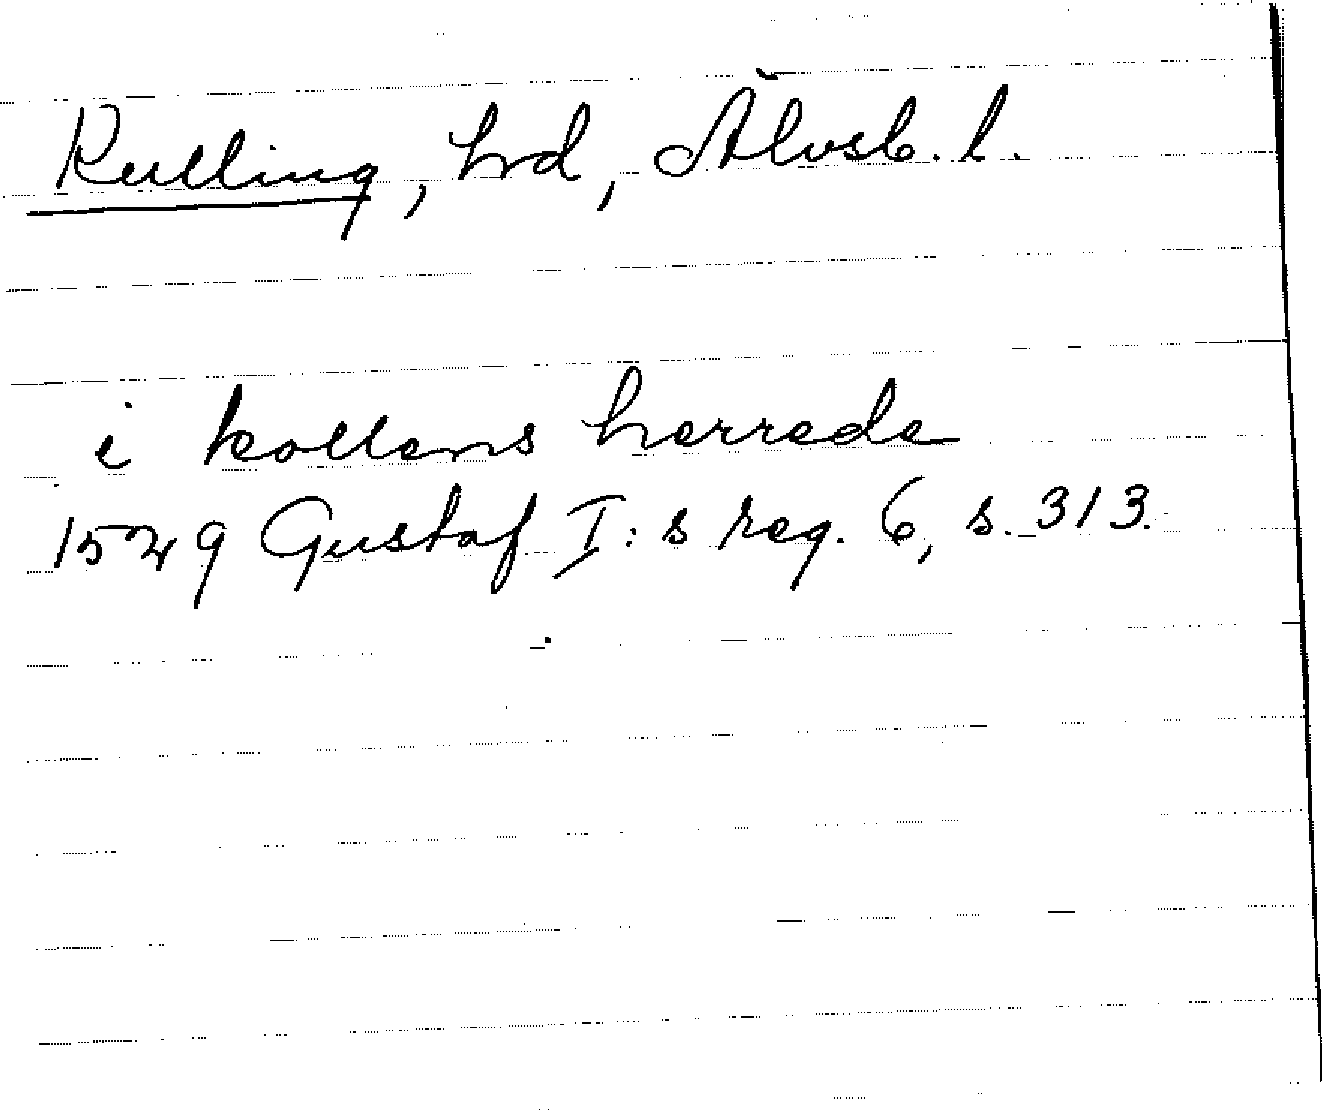 Kulling, hrd, Älvsb. l.
i kollens herrede
1529 Gustaf I:s reg. 6, s. 313.